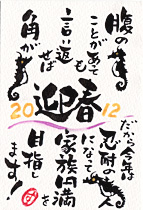 腹の
ことがあって
も
言い返
せば
角が
迎春
2012
だから今年は
忍耐の人
になって
家族円満
を
目指し
ます!